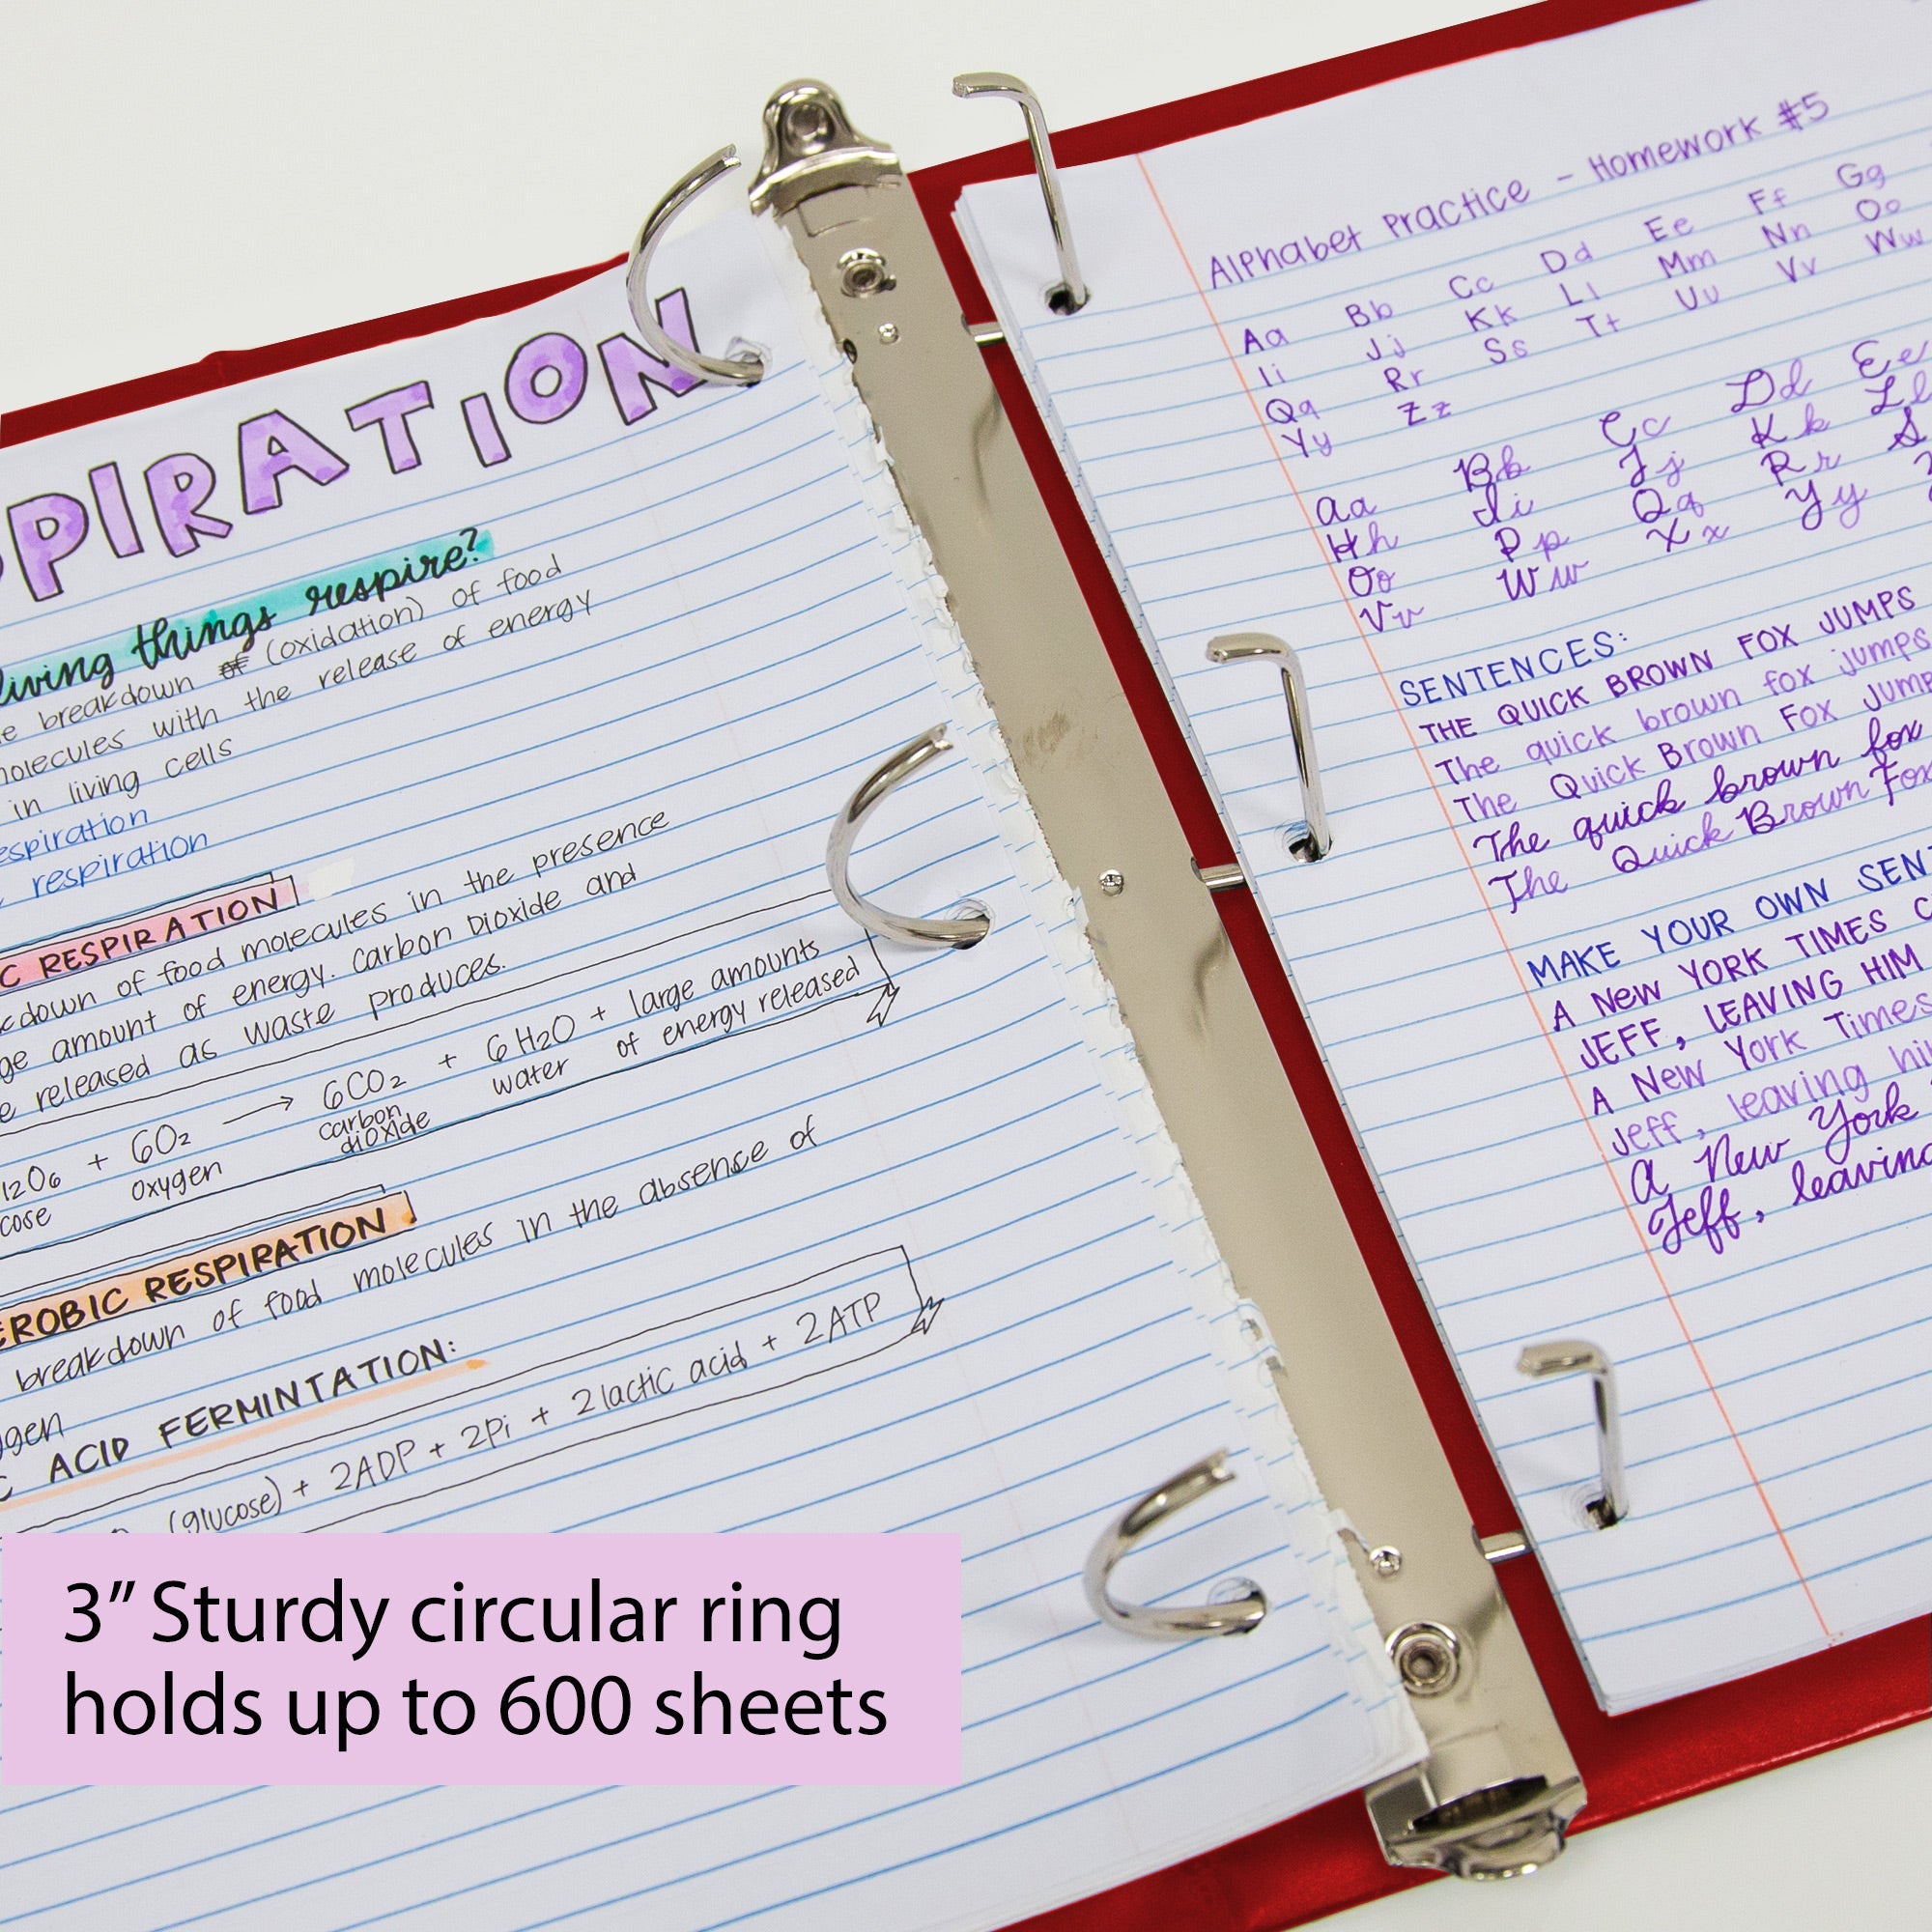 PIRATION
living things respire?
breakdown of (oxidation) of food
molecules with the release of energy
in living cells
respiration
respiration
C RESPIRATION
kdown of food molecules in the presence
ge amount of energy. Carbon Dioxide and
e released as waste produces.
12O6 + 6O2 → 6CO2 + 6H2O + large amounts
cose oxygen carbon dioxide water of energy released
EROBIC RESPIRATION
breakdown of food molecules in the absence of
ygen
C ACID FERMINTATION:
(glucose) + 2ADP + 2Pi + 2lactic acid + 2ATP
3" Sturdy circular ring
holds up to 600 sheets
Alphabet Practice - Homework #5
Aa Bb Cc Dd Ee Ff Gg
Ii Jj Kk Ll Mm Nn Oo
Qq Rr Ss Tt Uu Vv Ww
Yy Zz
Aa Bb Cc Dd Ee
Hh Ii Jj Kk Ll
Oo Pp Qq Rr S
Vv Ww Xx Yy
SENTENCES:
THE QUICK BROWN FOX JUMPS
The quick brown fox jumps
The Quick Brown Fox Jump
The quick brown fox
The Quick Brown Fox
MAKE YOUR OWN SENT
A NEW YORK TIMES C
JEFF, LEAVING HIM
A New York Times
Jeff, leaving hi
A New York
Jeff, leaving